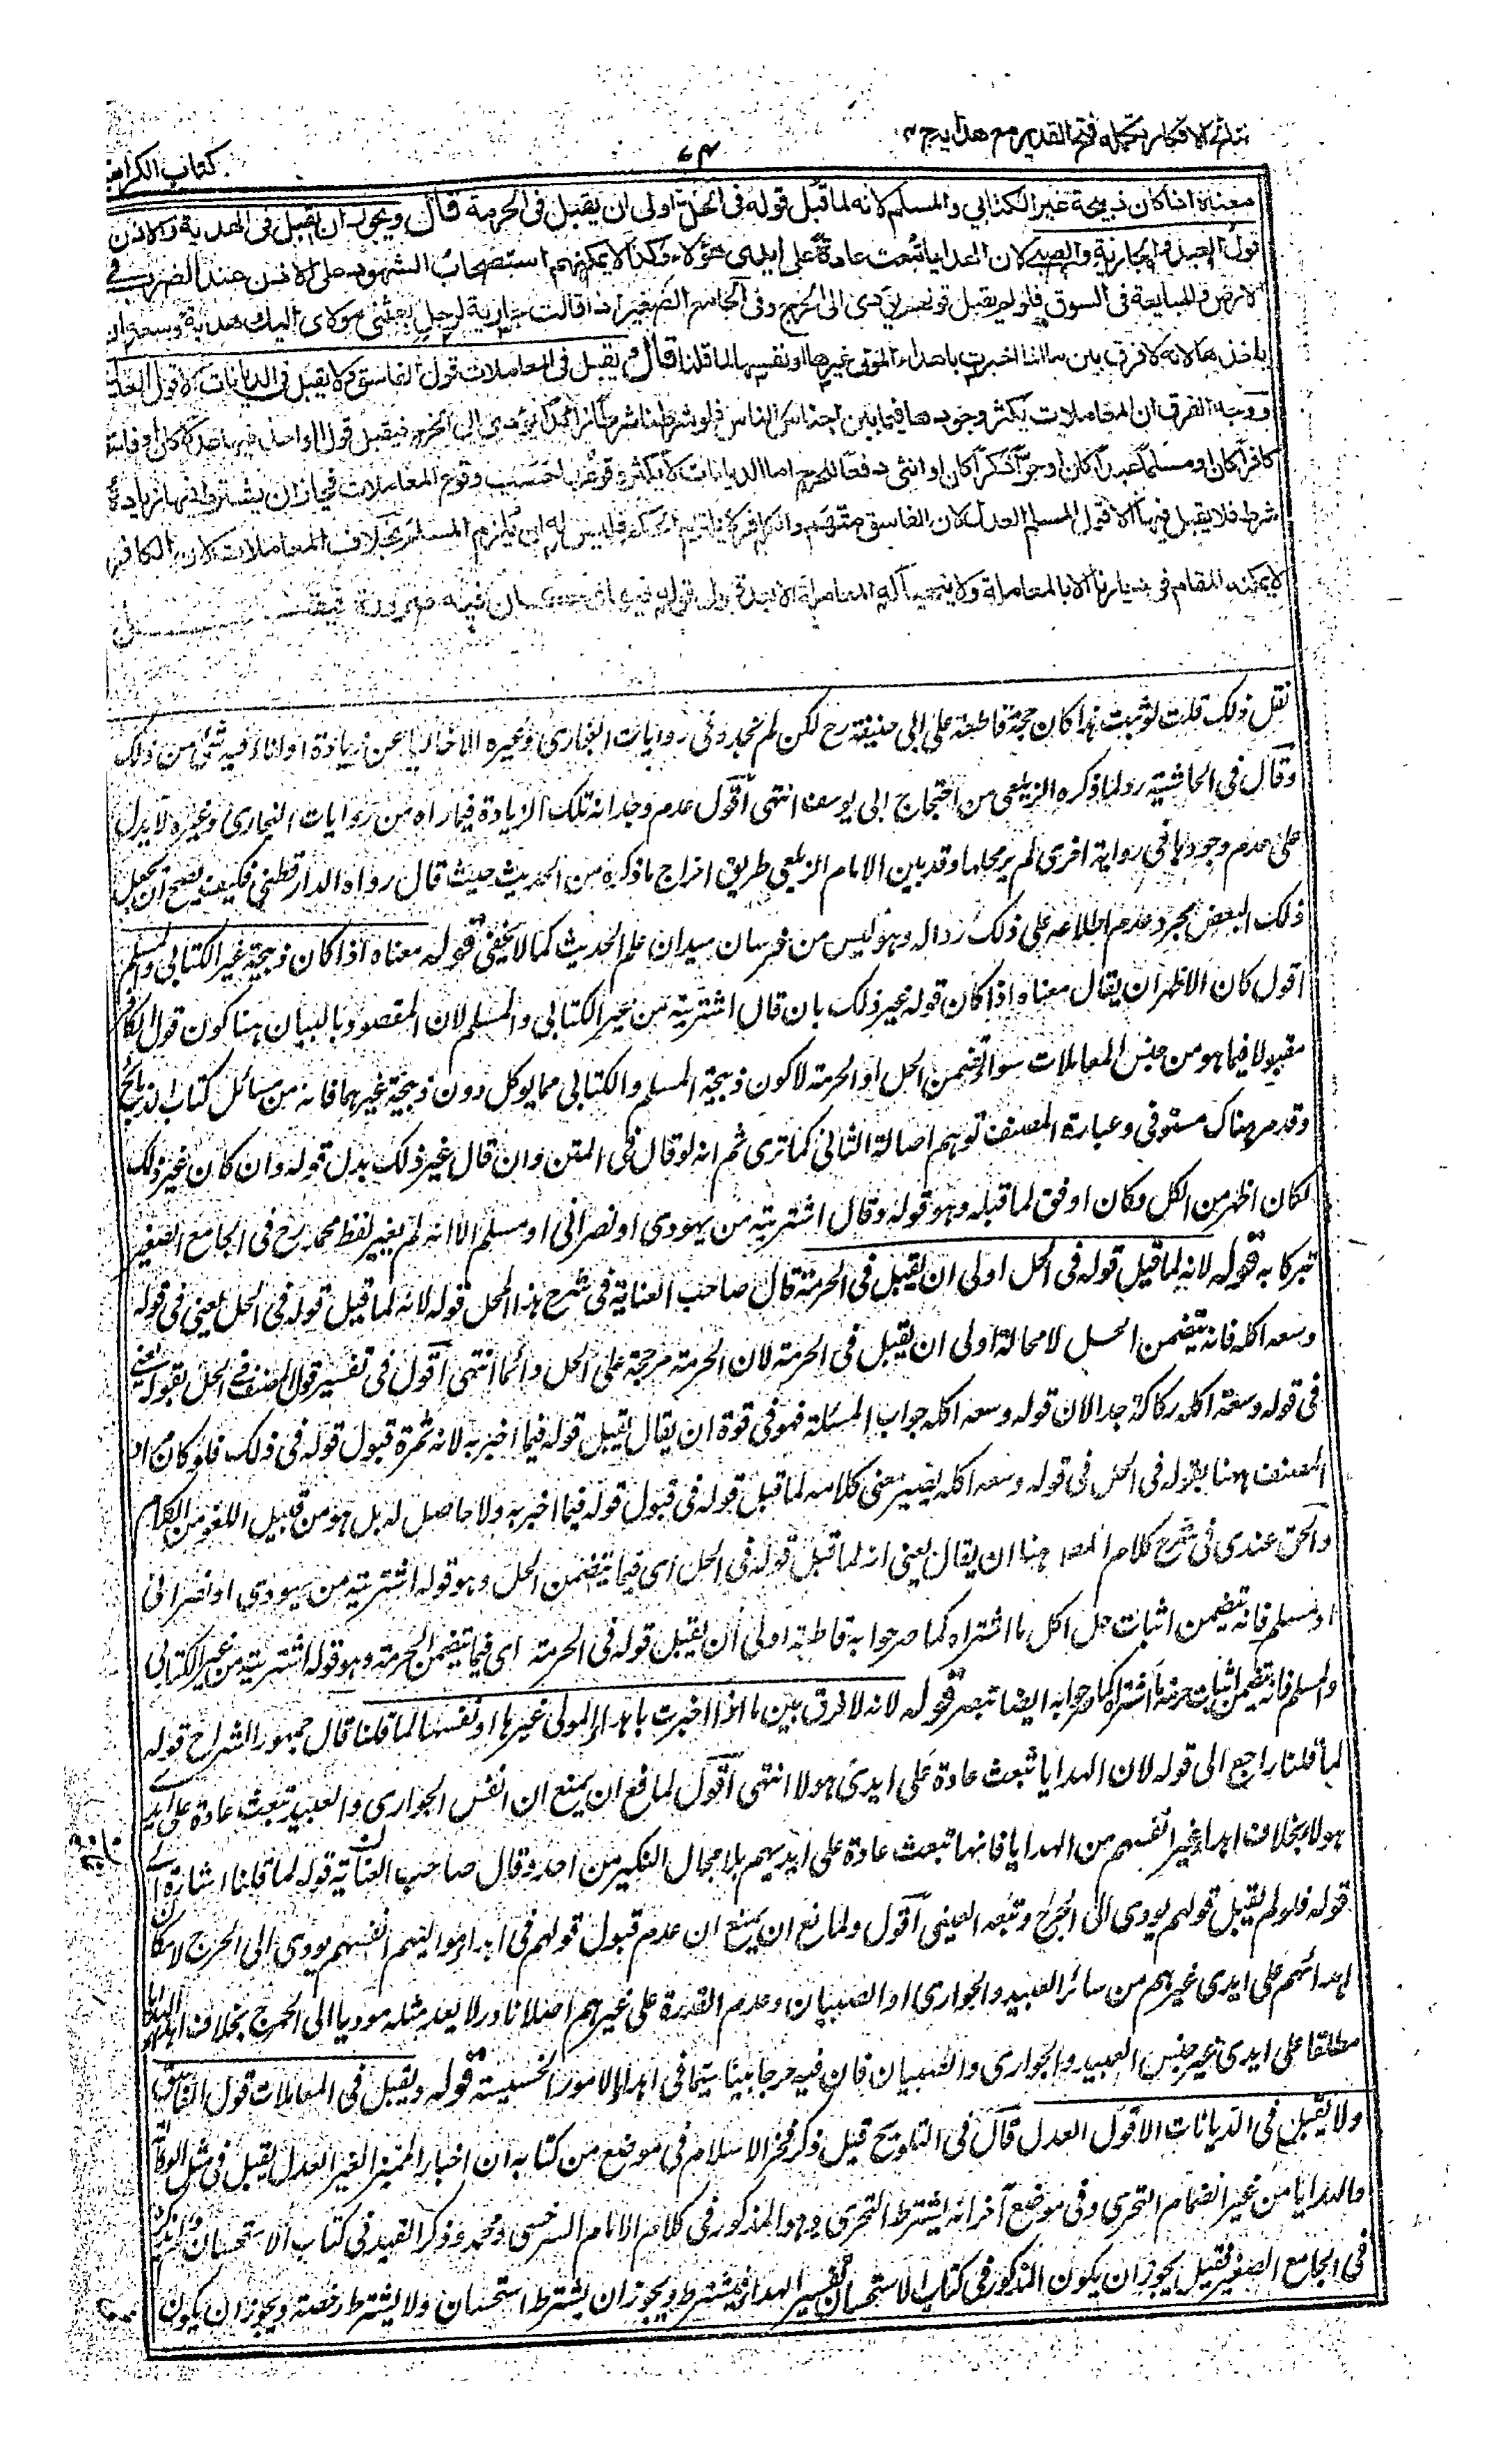 نتائج الافكار تكمله فتح القدير مع هدايه ج ٤
٧٤
كتاب الكراهية
معناه اذا كان ذبيحة غير الكتابي والمسلم لانه لما قبل قوله في الحل اولى ان يقبل في الحرمة قال ويجوز ان يقبل في الهدية والاذن
قول العبد والجارية والصبي لان الهدايا تبعث عادة على ايدي هؤلاء وكذا لا يمكنهم استصحاب الشهود على الاذن عند الضرب في
الارض والمبايعة في السوق فلو لم يقبل قولهم يؤدي الى الحرج وفي الجامع الصغير اذا قالت جارية لرجل بعثني مولاي اليك هدية وسعه ان
ياخذها لانه لا فرق بين ما اذا اخبرت باهداء المولى غيرها او نفسها لما قلنا قال ويقبل في المعاملات قول الفاسق ولا يقبل في الديانات الا قول العدل
ووجه الفرق ان المعاملات يكثر وجودها فيما بين اجناس الناس فلو شرطنا شرطا زائدا يؤدي الى الحرج فيقبل قول الواحد فيها عدلا كان او فاسقا
كافرا كان او مسلما عبدا كان او حرا ذكرا كان او انثى دفعا للحرج اما الديانات لا يكثر وقوعها حسب وقوع المعاملات فجاز ان يشترط فيها زيادة
شرط فلا يقبل فيها الا قول المسلم العدل لان الفاسق متهم والكافر لا يلتزم الحكم فليس له ان يلزم المسلم بخلاف المعاملات لان الكافر
لا يمكنه المقام في ديارنا الا بالمعاملة ولا يتهيأ له المعاملة الا بعد قبول قوله فيها فكان فيه ضرورة فيقبل
نقل ذلك قلت لو ثبت هذا كان حجة قاطعة على ابي حنيفة رح لكن لم نجد وفي روايات البخاري وغيره الا خاليا عن زيادة اولنا فيه شئ من ذلك
وقال في الحاشية رد لما ذكره الزيلعي من احتجاج ابي يوسف انتهى اقول عدم وجدانه تلك الزيادة فيما راه من روايات البخاري وغيره لا يدل
على عدم وجودها في رواية اخرى لم ير محلها وقد بين الامام الزيلعي طريق اخراج ما ذكره من الحديث حيث قال رواه الدارقطني فكيف يصح ان يجعل
ذلك البعض مجرد عدم اطلاعه على ذلك ردا له وهو ليس من فرسان ميدان علم الحديث كما لا يخفى قوله معناه اذا كان ذبيحة غير الكتابي والمسلم
اقول كان الاظهر ان يقال معناه اذا كان قوله غير ذلك بان قال اشتريته من غير الكتابي والمسلم لان المقصود بالبيان هنا كون قول الكافر
مقبولا فيما هو من جنس المعاملات سواء تضمن الحل او الحرمة لا كون ذبيحة المسلم والكتابي مما يوكل دون ذبيحة غيرهما فانه من مسائل كتاب الذبائح
وقد مر هناك مستوفى وعبارة المصنف توهم اصالة الثاني كما ترى ثم انه لو قال في المتن وان قال غير ذلك بدل قوله وان كان غير ذلك
لكان اظهر من الكل وكان اوفق لما قبله وهو قوله وقال اشتريته من يهودي او نصراني او مسلم الا انه لم يغير لفظ محمد رح في الجامع الصغير
تبركا به قوله لانه لما قبل قوله في الحل اولى ان يقبل في الحرمة قال صاحب العناية في شرح هذا المحل قوله لانه لما قبل قوله في الحل يعني في قوله
وسعه اكله فانه يتضمن الحل لا محالة اولى ان يقبل في الحرمة لان الحرمة مرجحة على الحل دائما انتهى اقول في تفسير قول المصنف في الحل بقوله يعني
في قوله وسعه اكله ركاكة جدا لان قوله وسعه اكله جواب المسئلة فهو في قوة ان يقال يقبل قوله فيما اخبر به لانه ثمرة قبول قوله في ذلك فلو كان مراد
المصنف ههنا بقوله في الحل في قوله وسعه اكله يصير معنى كلامه لما قبل قوله في قبول قوله فيما اخبر به ولا حاصل له بل هو من قبيل اللغو من الكلام
والحق عندي في شرح كلام المصـ هنا ان يقال يعني انه لما قبل قوله في الحل اي فيما يتضمن الحل وهو قوله اشتريته من يهودي او نصراني
او مسلم فانه يتضمن اثبات حل اكل ما اشتراه كما صرحوا به قاطبة اولى ان يقبل قوله في الحرمة اي فيما يتضمن الحرمة وهو قوله اشتريته من غير الكتابي
والمسلم فانه يتضمن اثبات حرمة ما اشتراه كما صرحوا به ايضا تبصر قوله لانه لا فرق بين ما اذا اخبرت باهداء المولى غيرها او نفسها لما قلنا قال جمهور الشراح قوله
لما قلنا راجع الى قوله لان الهدايا تبعث عادة على ايدي هولاء انتهى اقول لمانع ان يمنع ان انفس الجواري والعبيد تبعث عادة على ايدي
هولاء بخلاف اهداء غير انفسهم من الهدايا فانها تبعث عادة على ايديهم بلا مجال النكير من احد وقال صاحب العناية قوله لما قلنا اشارة الى
قوله فلو لم يقبل قولهم يودي الى الحرج وتبعه العيني اقول ولمانع ان يمنع ان عدم قبول قولهم في اهداء مواليهم انفسهم يودي الى الحرج لامكان
اهدائهم على ايدي غيرهم من سائر العبيد والجواري او الصبيان وعدم القدرة على غيرهم اصلا نادر لا يعد مثله موديا الى الحرج بخلاف اهداء الهدايا
مطلقا على ايدي غير جنس العبيد والجواري والصبيان فان فيه حرجا بينا سيما في اهداء الامور الخسيسة قوله ويقبل في المعاملات قول الفاسق
ولا يقبل في الديانات الا قول العدل قال في التلويح قبل ذكر فخر الاسلام في موضع من كتابه ان اخبار المميز الغير العدل يقبل في مثل الوكالة
والهدايا من غير انضمام التحري وفي موضع آخر انه يشترط التحري وهو المذكور في كلام الامام السرخسي ومحمد ذكر القيد في كتاب الاستحسان ولم يذكره
في الجامع الصغير فقيل يجوز ان يكون المذكور في كتاب الاستحسان تفسيرا لهذا فيشترط ويجوز ان يشترط استحسانا ولا يشترط رخصة ويجوز ان يكون